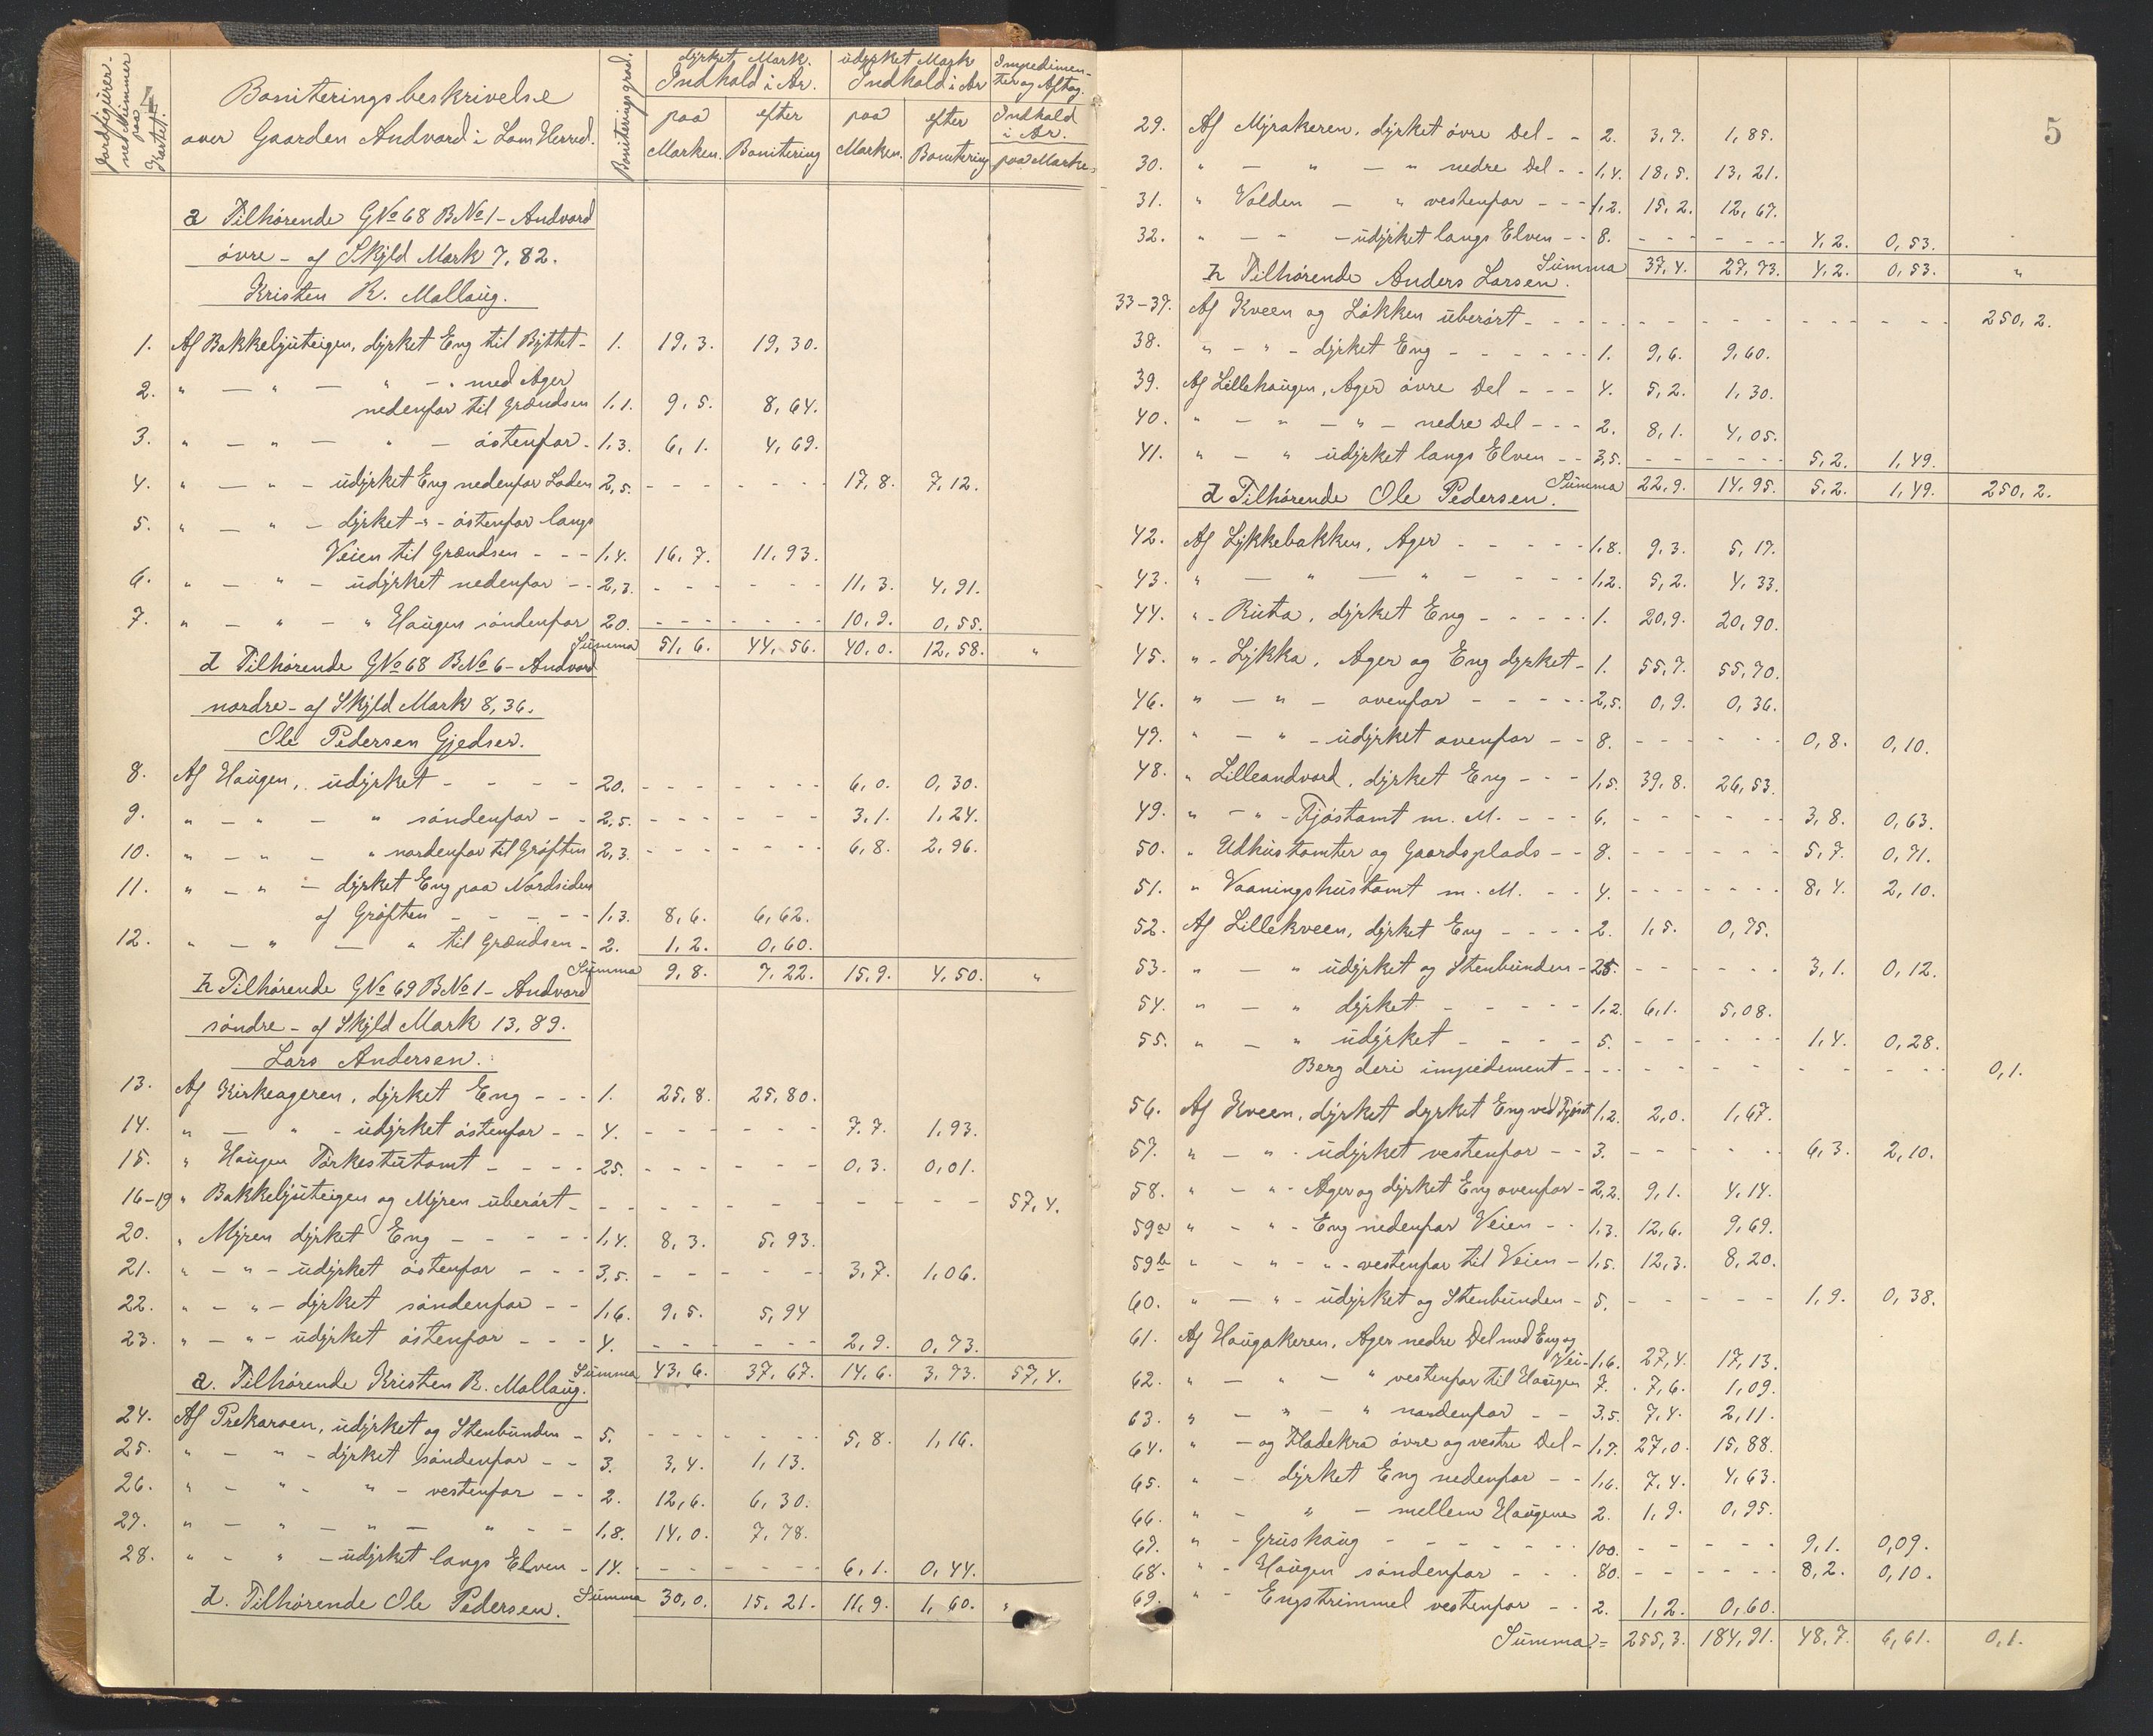 Jordfigurer-
nes Nummer
paa
Kartet.
4
Boniteringsbeskrivelse
over Gaarden Andvord i Lom Herred.
Boniteringsgrad.
dyrket Mark. Indhold i Ar.
udyrket Mark Indhold i Ar
Impedimen-
ter og Aftag.
paa Marken. efter Bonitering paa Marken. efter Bonitering Indhold i Ar. paa Marke.
a Tilhørende GNo 68 BNo 1 - Andvord
øvre - af Skyld Mark 7,82.
Kristen R. Mollaug.
1. Af Bakkeljuteigen, dyrket Eng til Byttet - 1. 19,3. 19,30.
2. " — " — " — . med Ager
nedenfor til Grændsen 1,1. 9,5. 8,64.
3. " — " — " — østenfor - 1,3. 6,1. 4,69.
4. " — " — udyrket Eng nedenfor Laden 2,5. - - - - - - 17,8. 7,12.
5. " — " — dyrket -"- østenfor langs
Veien til Grændsen - - - 1,4. 16,7. 11,93.
6. " — " — udyrket nedenfor - - 2,3. - - - - - 11,3. 4,91.
7. " — " — " Haugen søndenfor 20. - - - - - - 10,9. 0,55.
Summa 51,6. 44,56. 40,0. 12,58. "
d Tilhørende GNo 68 BNo 6 - Andvord
nordre - af Skyld Mark 8,36.
Ole Pedersen Gjedser.
8. Af Haugen, udyrket - - - - 20. - - - - - - 6,0. 0,30.
9. " — " — " søndenfor - - 2,5. - - - - - - 3,1. 1,24.
10. " — " — " nordenfor til Grøften 2,3. - - - - - - 6,8. 2,96.
11. " — " — dyrket Eng paa Nordsiden
af Grøften - - - - - 1,3. 8,6. 6,62.
12. " — " — " til Grændsen - 2. 1,2. 0,60.
Summa 9,8. 7,22. 15,9. 4,50. "
h Tilhørende GNo 69 BNo 1 - Andvord
søndre - af Skyld Mark 13,89.
Lars Andersen.
13. Af Kirkeageren, dyrket Eng - - - 1. 25,8. 25,80.
14. " — " - udyrket østenfor - - 4. - - - - - - 7,7. 1,93.
15. " Haugen Tørkestutomt - - - - 25. - - - - - - 0,3. 0,01.
16-19 " Bakkeljuteigen og Myren uberørt - - - - - - - - - - 57,4.
20. " Myren dyrket Eng - - - - - 1,4. 8,3. 5,93.
21. " - " - udyrket østenfor - - - 3,5. - - - - - 3,7. 1,06.
22. " - " - dyrket søndenfor - - 1,6. 9,5. 5,94
23. " - " - udyrket østenfor - - - 4. - - - - - - 2,9. 0,73.
Summa 43,6. 37,67. 14,6. 3,73. 57,4.
a. Tilhørende Kristen R. Mollaug.
24. Af Prekarven, udyrket og Stenbunden - 5. - - - - - - 5,8. 1,16.
25. " - " - dyrket søndenfor - - 3. 3,4. 1,13.
26. " - " - " - vestenfor - - 2. 12,6. 6,30.
27. " — " — " — " - - 1,8. 14,0. 7,78.
28. " - " - udyrket langs Elven - 14. - - - - - 6,1. 0,44.
Summa 30,0. 15,21. 11,9. 1,60. "
d. Tilhørende Ole Pedersen.
5
29. Af Myrakeren, dyrket øvre Del - - 2. 3,7. 1,85.
30. " — " — " nedre Del - - 1,4. 18,5. 13,21.
31. " Volden — " vestenfor - - - 1,2. 15,2. 12,67.
32. " — " - udyrket langs Elven - - 8. - - - - - - 4,2. 0,53.
Summa 37,4. 27,73. 4,2. 0,53. "
h Tilhørende Anders Larsen.
33-37. Af Kveen og Løkken uberørt - - - - - - - - - - 250,2.
38. " - " - dyrket Eng - - - - - - 1. 9,6. 9,60.
39. Af Lillehaugen, Ager øvre Del - - - 4. 5,2. 1,30.
40. " - " - " - nedre Del - - - 2. 8,1. 4,05.
41. " - " udyrket langs Elven - - 3,5. - - - - - - 5,2. 1,49.
Summa 22,9. 14,95. 5,2. 1,49. 250,2.
d Tilhørende Ole Pedersen.
42. Af Lykkebakken, Ager - - - - - 1,8. 9,3. 5,17.
43. " — " — " - - - - 1,2. 5,2. 4,33.
44. " - Ruta, dyrket Eng - - - - - 1. 20,9. 20,90.
45. " - Lykka, Ager og Eng dyrket - 1. 55,7. 55,70.
46. " — " — ovenfor - - - - - 2,5. 0,9. 0,36.
47. " — " - udyrket ovenfor - - 8. - - - - - - 0,8. 0,10.
48. " Lilleandvord, dyrket Eng - - - 1,5. 39,8. 26,53.
49. " - " - Fjøstomt m. M. - - - 6. - - - - - 3,8. 0,63.
50. " Udhustomter og Gaardsplads - - 8. - - - - - 5,7. 0,71.
51. " Vaaningshustomt m. M. - - 4. - - - - - - 8,4. 2,10.
52. Af Lillekveen, dyrket Eng - - - - 2. 1,5. 0,75.
53. " — " udyrket og Stenbunden - 25. - - - - - 3,1. 0,12.
54. " — " dyrket - - - - - 1,2. 6,1. 5,08.
55. " — " udyrket - - - - 5. - - - - - - 1,4. 0,28.
Berg deri impediment - - - - - - - - - - 0,1.
56. Af Kveen, dyrket dyrket Eng ved Fjøset 1,2. 2,0. 1,67.
57. " — " - udyrket vestenfor - - 3. - - - - - 6,3. 2,10.
58. " — " - Ager og dyrket Eng ovenfor - 2,2. 9,1. 4,14.
59a " — " - Eng nedenfor Veien - - 1,3. 12,6. 9,69.
59b " - " - " - vestenfor til Veien - 1,5. 12,3. 8,20.
60. " — " - udyrket og Stenbunden - 5. - - - - - 1,9. 0,38.
61. Af Haugakeren, Ager nedre Del med Eng og
Vei - 1,6. 27,4. 17,13.
62. " - " - " vestenfor til Haugen 7. 7,6. 1,09.
63. " — " - " nordenfor - - 3,5. 7,4. 2,11.
64. " - og Fladekra øvre og vestre Del - 1,7. 27,0. 15,88.
65. " - dyrket Eng nedenfor - - 1,6. 7,4. 4,63.
66. " - " - mellem Haugene 2. 1,9. 0,95.
67. " - Grushaug - - - - - - 100. - - - - - 9,1. 0,09.
68. " - Haugen søndenfor - - - 80. - - - - - 8,2. 0,10.
69. " - Engstrimmel vestenfor - - 2. 1,2. 0,60.
Summa = 255,3. 184,91. 48,7. 6,61. 0,1.